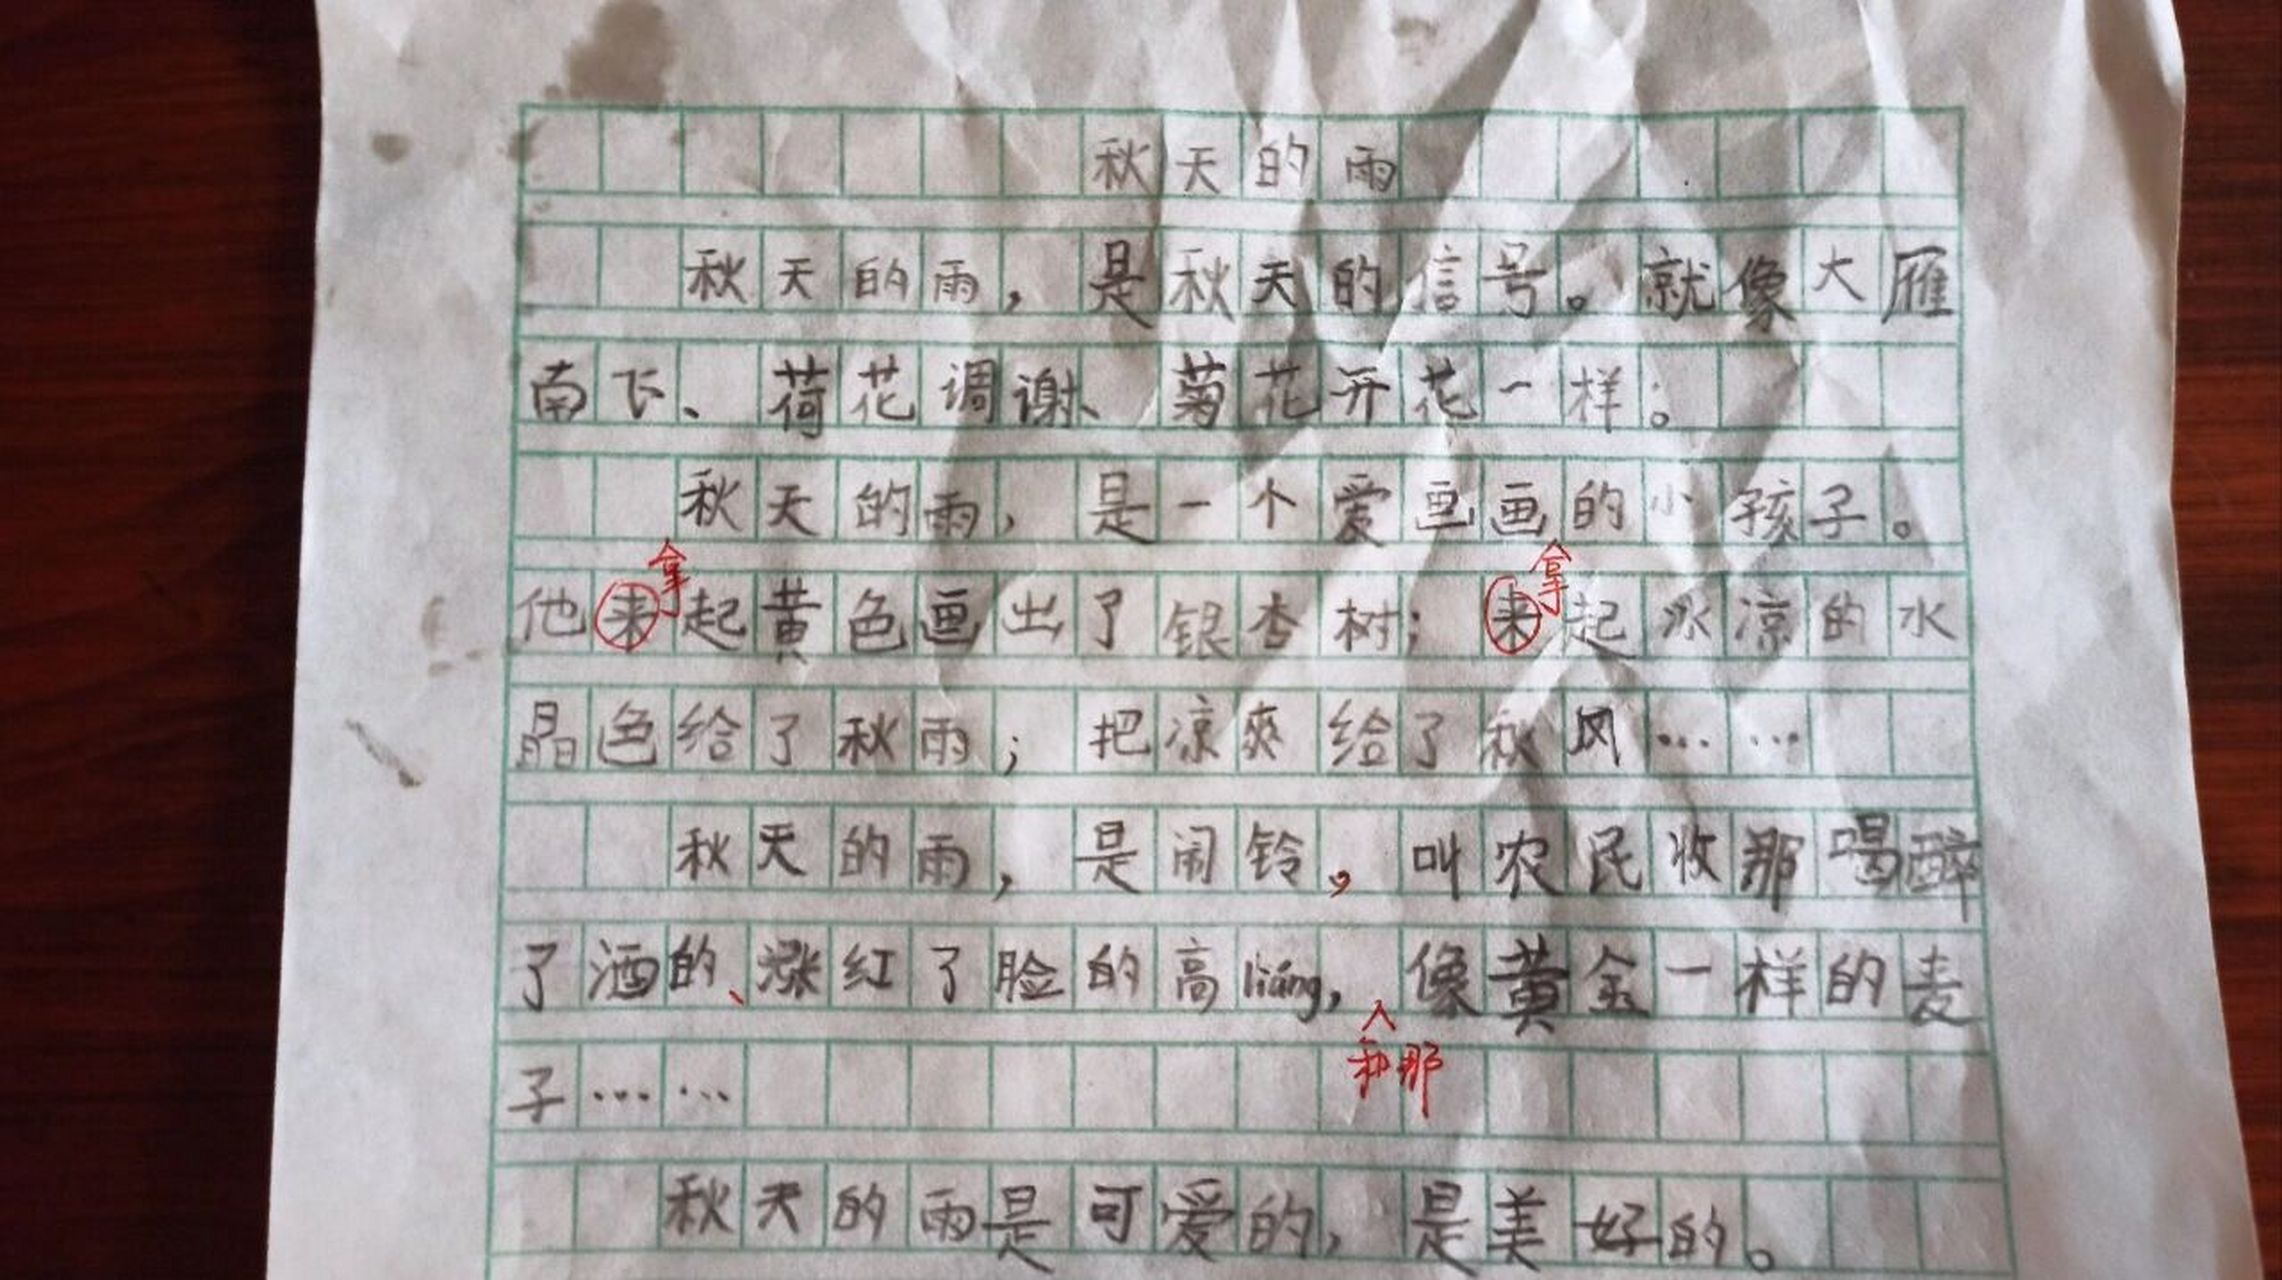 秋天的雨
秋天的雨，是秋天的信号。就像大雁
南飞、荷花调谢、菊花开花一样。
秋天的雨，是一个爱画画的小孩子。
拿 拿
他来起黄色画出了银杏树；来起冰凉的水
晶色给了秋雨；把凉爽给了秋风……
秋天的雨，是闹铃，叫农民收那喝醉
了酒的、涨红了脸的高liáng，像黄金一样的麦
和那
子……
秋天的雨是可爱的，是美好的。